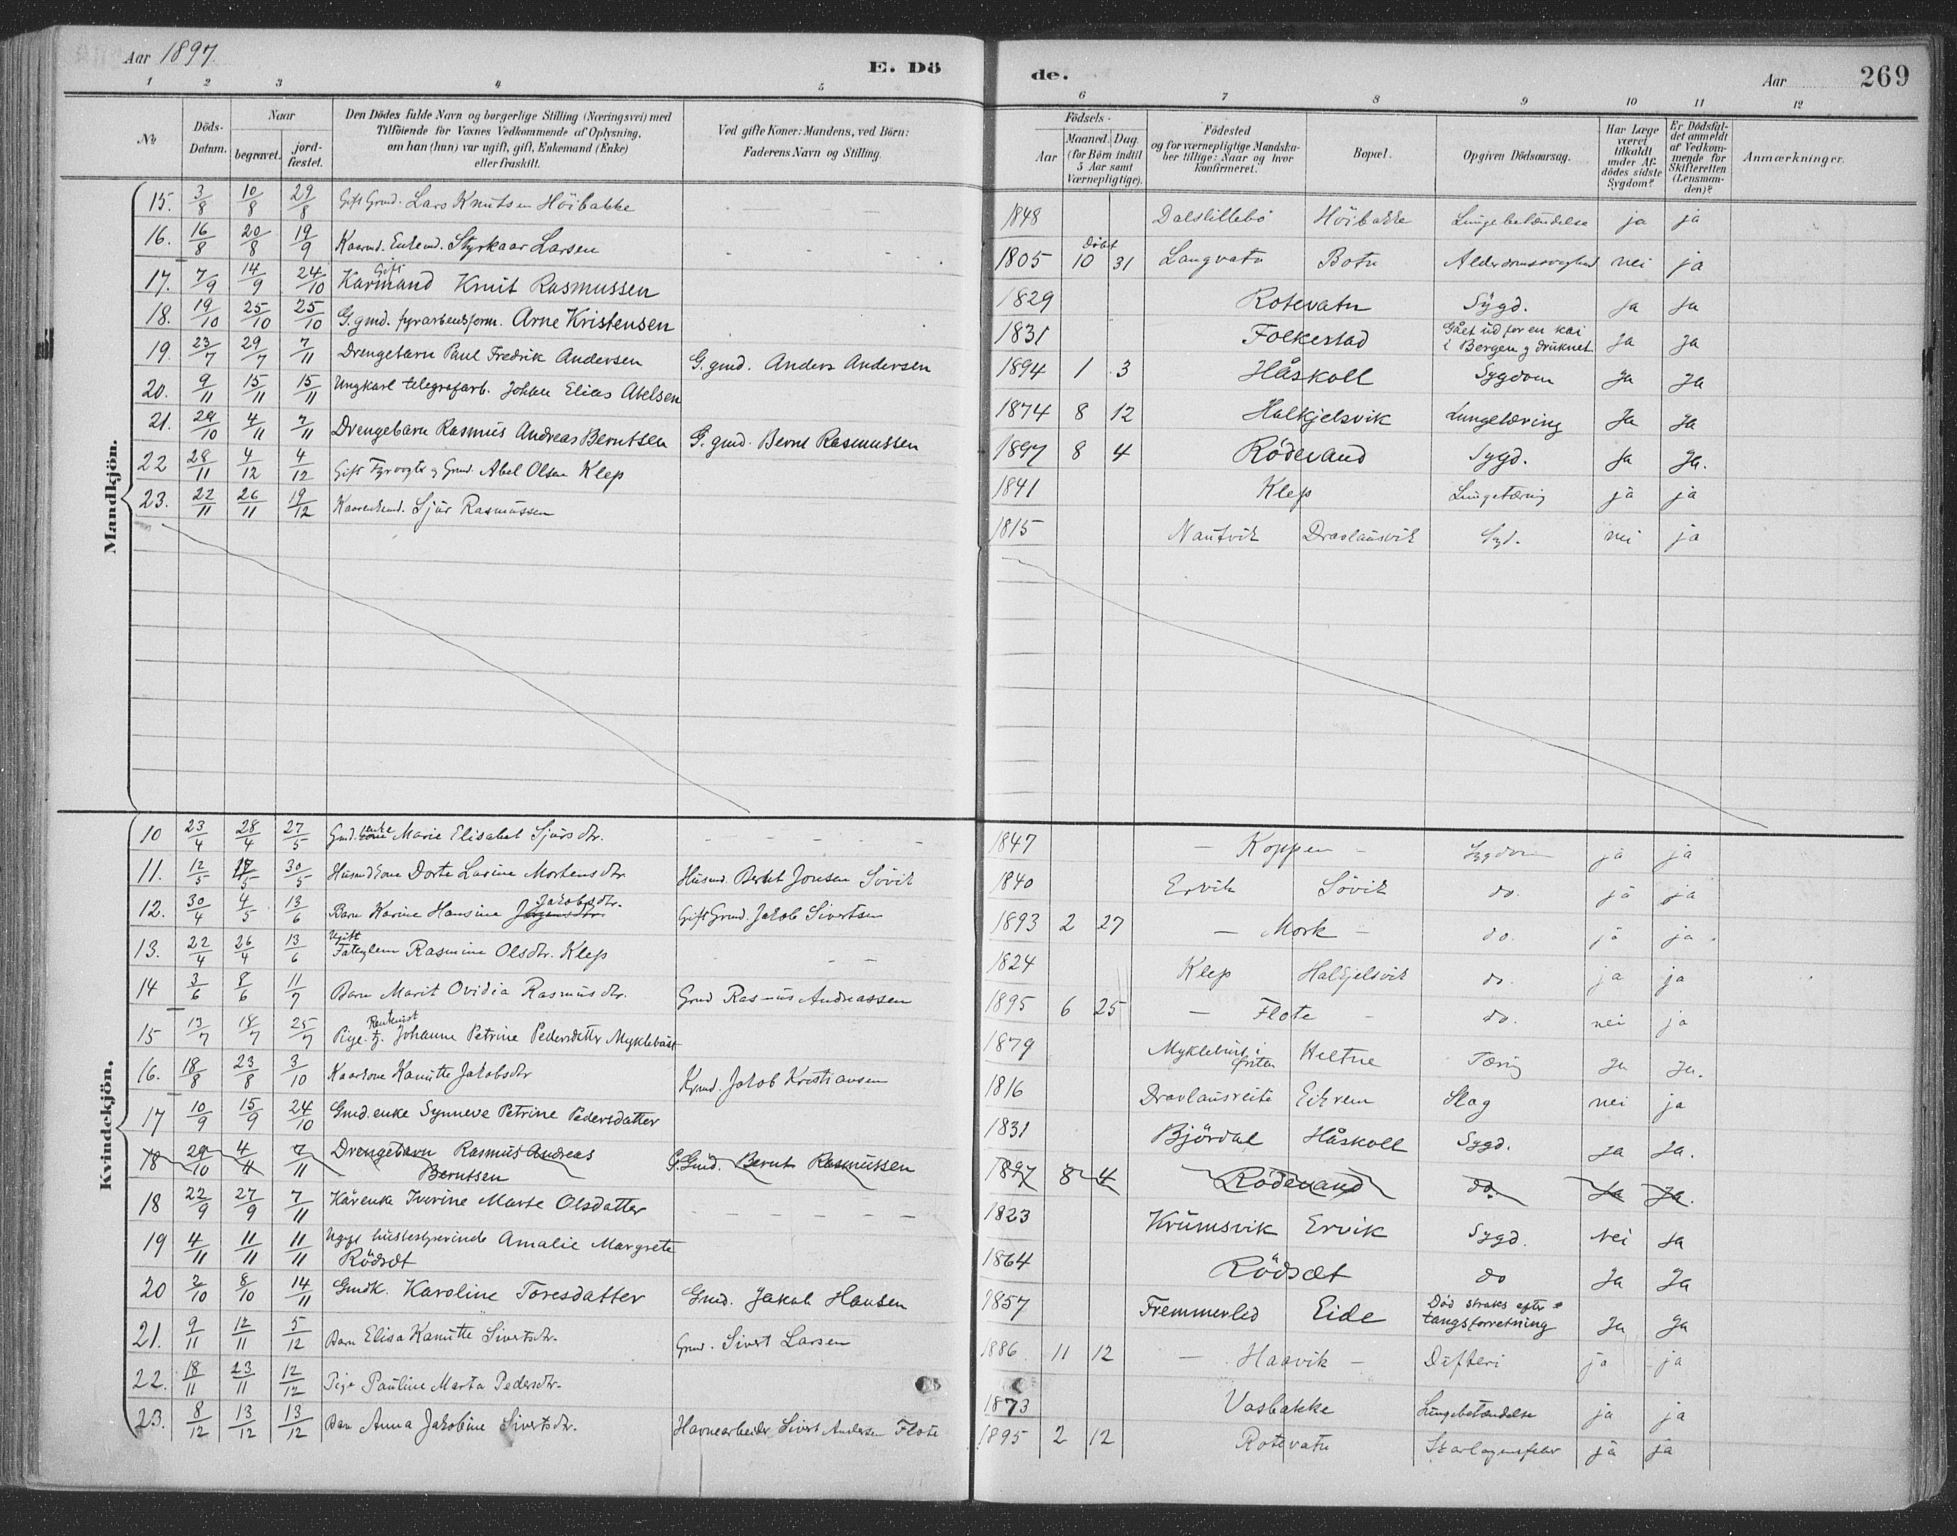 Aar 1897 E. Dö de. Aar 269
1 2 3 4 5 6 7 8 9 10 11 12
No Döds-Datum. Naar begravet. jordfæstet. Den Dödes fulde Navn og borgerlige Stilling (Næringsvei) med Tilföiende for Voxnes Vedkommende af Oplysning, om han (hun) var ugift, gift, Enkemand (Enke) eller fraskilt. Ved gifte Koner: Mandens, ved Börn: Faderens Navn og Stilling. Födsels- Aar Maaned. Dag. (for Börn indtil 5 Aar samt Værnepligtige). Födested og for værnepligtige Mandskaber tillige: Naar og hvor konfirmeret. Bopæl. Opgiven Dödsaarsag. Har Læge været tilkaldt under Afdödes sidste Sygdom? Er Dödsfaldet anmeldt af Vedkommende for Skifteretten (Lensmanden)? Anmærkninger.
Mandkjön.
15. 3/8 10/8 29/8 Gift Grmd. Lars Knutsen Höibakke — — — 1848 Dalslillebö Höibakke Lungebetændelse ja ja
16. 16/8 20/8 19/9 Kaarmd. Enkem. Styrkaar Larsen - - - - 1805 döbt 10 31 Langvatn Botn Alderdomssvaghed nei ja
17. 7/9 14/9 24/10 Gift Karmand Knut Rasmussen 1829 Rotevatn Sygd. Ja Ja
18. 19/10 25/10 25/10 G.gmd. fyrarbeidsform. Arne Kristensen 1831 Folkestad Gået ud for en kai i Bergen og druknet Ja Ja
19. 23/7 29/7 7/11 Drengebarn Paul Fredrik Andersen G. gmd. Anders Andersen 1894 1 3 Håskoll Sygdom Ja Ja
20. 9/11 15/11 15/11 Ungkarl telegrafarb. Johan Elias Abelsen 1874 8 12 Halkjelsvik Lungetæring Ja Ja
21. 29/10 4/11 7/11 Drengebarn Rasmus Andreas Berntsen G. gmd. Bernt Rasmussen 1897 8 4 Rödevand Sygd. Ja Ja.
22 28/11 4/12 4/12 Gift Fyrvogter og Grmd. Abel Olsen Klep 1841 Klep Lungetæring ja ja
23. 22/11 26/11 19/12 Kaarenkemd. Sjur Rasmussen 1815 Nautvik Dravlausvik Syd. nei ja
Kvindekjön.
10 23/4 28/4 27/5 Gmd. kone enke Marie Elisabet Sjursdtr. - - - - 1847 - Koppen - Sygdom ja ja
11. 12/5 17/5 30/5 Husmdkone Dorte Lasine Mortensdtr. Husmd. Bertel Jonsen Sövik 1840 Ervik Sövik do. ja ja
12. 30/4 4/5 13/6 Barn Karine Hansine Jörgensdtr. Jakobsdtr. Gift Grmd. Jakob Sivertsen 1893 2 27 - Mork - do. ja ja.
13. 22/4 26/4 13/6 Ugift Fattiglem Rasmine Olsdtr. Klep - - 1824 Klep Halkjelsvik do. ja ja
14 3/6 8/6 11/7 Barn Marit Ovidia Rasmusdtr. Grmd Rasmus Andreassen 1895 6 25 - Flote - do. nei ja
15 13/7 18/7 25/7 Pige. tj. Johanne Petrine Pedersdatter Myklebust 1879 Myklebust i Örsten Heltne Tæring Ja Ja.
16. 18/8 23/8 3/10 Kaarkone Kanutte Jakobsdtr Krmd. Jakob Kristiansen 1816 Dravlausreite Eikrem Slag nei ja
17 10/9 15/9 24/10 Gmd. enke Synneve Petrine Pedersdatter 1831 Björdal Håskoll Sygd. Ja Ja.
18 29/10 4/11 7/11 Drengebarn Rasmus Andreas Berntsen G. Gmd. Bernt Rasmussen 1897 8 4 Rödevand do. Ja Ja.
18 22/9 27/9 7/11 Kårenke Iverine Marte Olsdatter - - - - 1823 Krumsvik Ervik Sygd. Nei Ja
19 4/11 11/11 11/11 Ugift husbestyrerinde Amalie Margrete Rödsdt 1864 Rödsæt do Ja Ja
20 2/10 8/10 14/11 Gmdk. Karoline Toresdatter Gmd. Jakob Hansen 1857 Fremmerlid Eide Död straks efter tangsforretning Ja Ja
21. 9/11 12/11 5/12 Barn Elisa Kanutte Sivertsdtr. Grmd. Sivert Larsen 1886 11 12 - Haavik - Difteri ja ja
22. 18/11 23/11 12/12 Pige Pauline Marta Pedersdtr. 1873 Vasbakke Lungebetændelse ja ja
23. 8/12 13/12 13/12 Barn Anna Jakobine Sivertsdtr. Havnearbeider Sivert Andersen Flote 1895 2 12 Rotevatn Skarlagensfeber ja ja